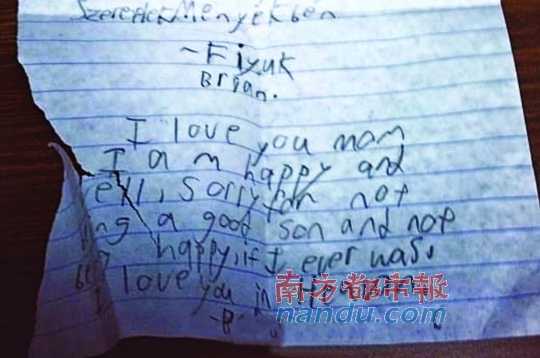 Szeretlek Menyekben
~Fiyuk
Brian.
I love you mom
I am happy and
ell, sorry for not
ing a good son and not
happy, if I ever was.
I love you in Heaven
-B
南方都市報
nandu.com